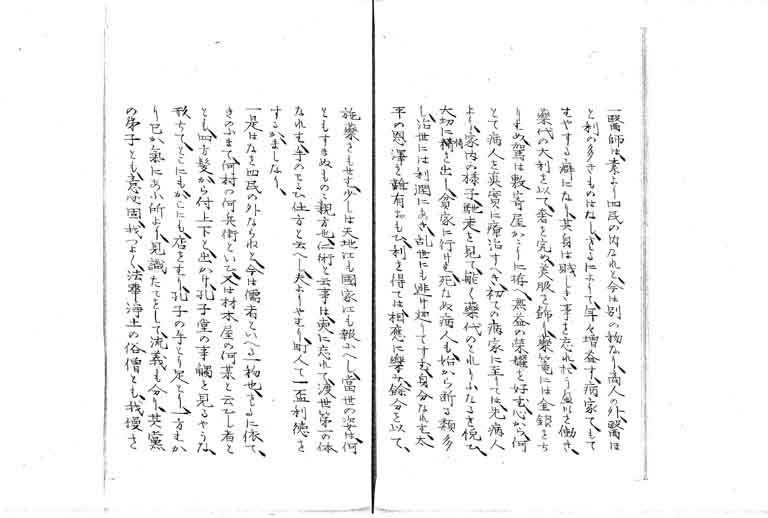 一醫師は素より四民の内なれと今は別の物なり商人の外醫ほ
と利の多きものはなしさるによりて年々増益す病家てもて
むやする癖になり其身は賤しき事を忘れ を働き
藥代の大利を以て奢を究め美服を飾り藥篭には金銀をち
りはめ駕は數寄屋 に拵へ無益の榮耀を好む心から何
とて病人を眞實に療治すへき初ての病家に至りては先病人
より家内の様子馳走を見て能く藥代のとれりふなるを悦ひ
大切に精を出し貧家に行けは死なぬ病人も始から斷る類多
し治世には利潤にあき乱世にも逃け廻りてすむ身分なれは太
平の恩澤を難有おもひ利を得ては相應に樂み餘分を以て
施藥をもせは少しは天地江も國家江も報ふへし當世の姿は何
ともすまぬものと親方也仁術と云事は更に忘れて渡世第一の体
なれは手のとひ仕方と云へし夫よりやはり町人て一盃利徳を
するかましなり
一是はなを四民の外なられと今は儒者といへる一物也さるに依て
きのふまて何村の何兵衛といひ又は材木屋の何某と云ひし者と
とも四方髪から付上下と出かけ孔子堂の事觸を見るやうな
形ちてとこにもかしこにも店をはり孔子の手とり足とり一方むか
り己か氣にあふ所より見識たてをして流義も分り其黨
の弟子とも意地固我つよく法華浄土の俗僧とも我慢を